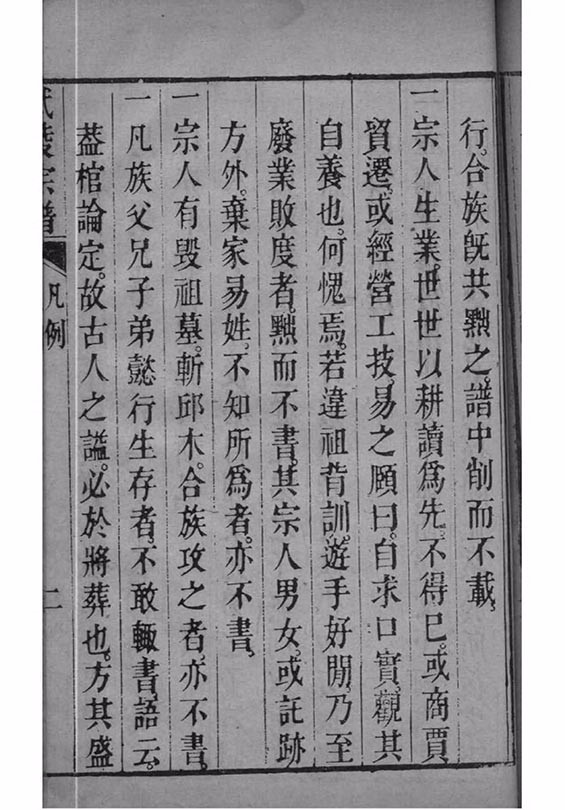 行。合族旣共黜之。譜中削而不載。
一宗人生業。世世以耕讀爲先。不得已。或商賈
貿遷。或經營工技。易之頤曰。自求口實。觀其
自養也。何愧焉。若違祖背訓。遊手好閒。乃至
廢業敗度者。黜而不書。其宗人男女。或託跡
方外。棄家易姓。不知所爲者。亦不書。
一宗人有毀祖墓。斬邱木。合族攻之者。亦不書。
一凡族父兄子弟懿行生存者。不敢輙書。語云。
葢棺論定。故古人之謚。必於將葬也。方其盛
氏陵宗譜 凡例 二